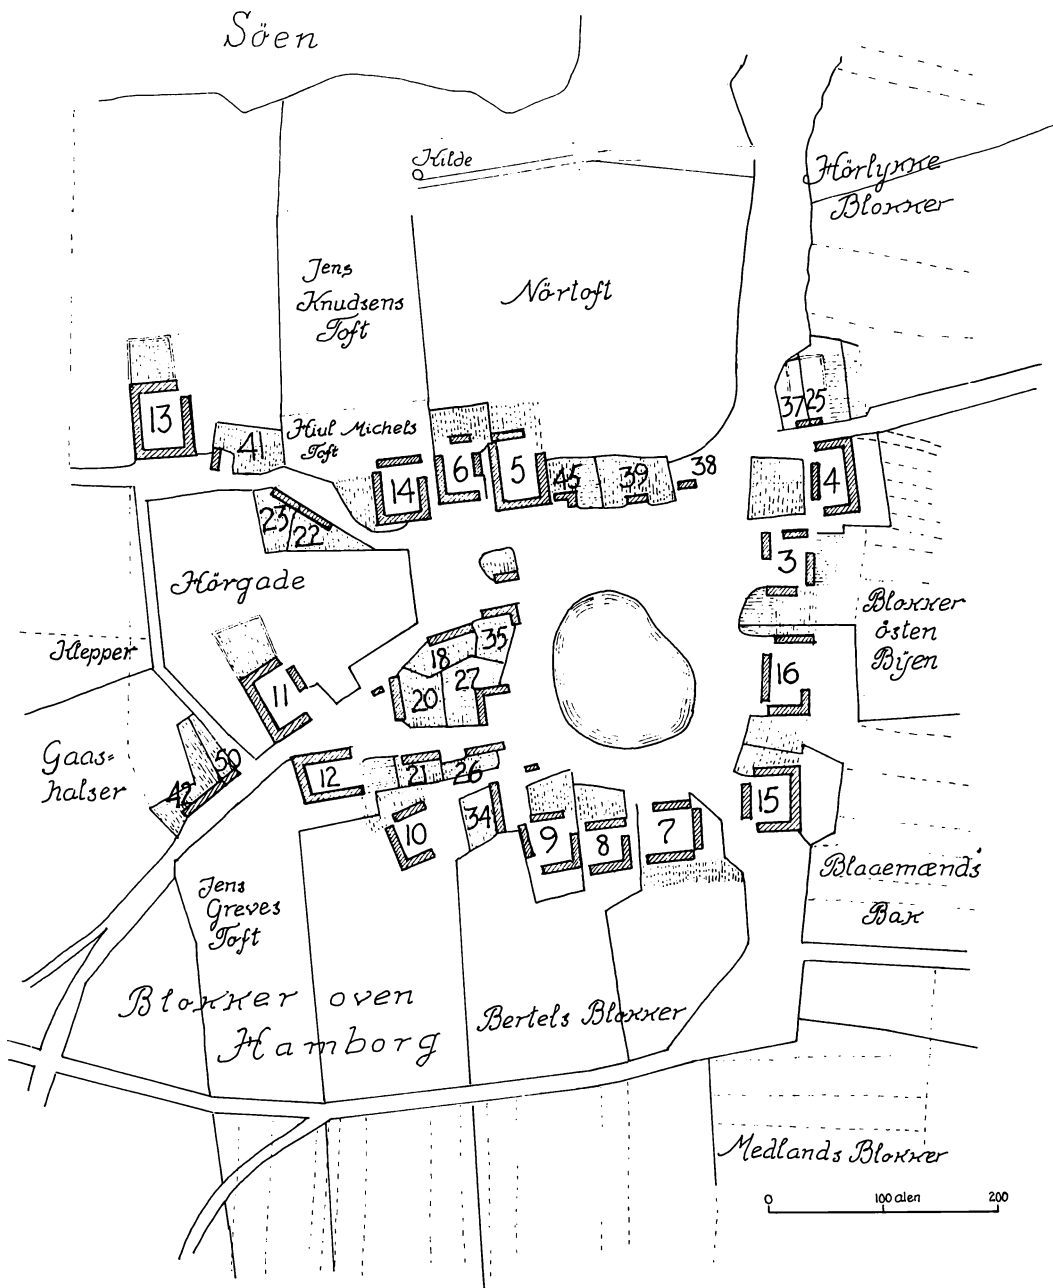 Söen
Kilde
Hörlykke
Blokker
Jens
Knudsens
Toft
Nörtoft
37
25
13
41
Hiul Michels
Toft
14
6
5
45
39
38
4
23
22
3
Hörgade
Klepper
Blokker
östen
Bÿen
35
18
27
20
11
16
Gaas=
halser
50
42
12
21
26
10
34
9
8
7
15
Blaaemænds
Bak
Jens
Greves
Toft
Blokker oven
Hamborg
Bertels Blokker
Medlands Blokker
0 100 alen 200